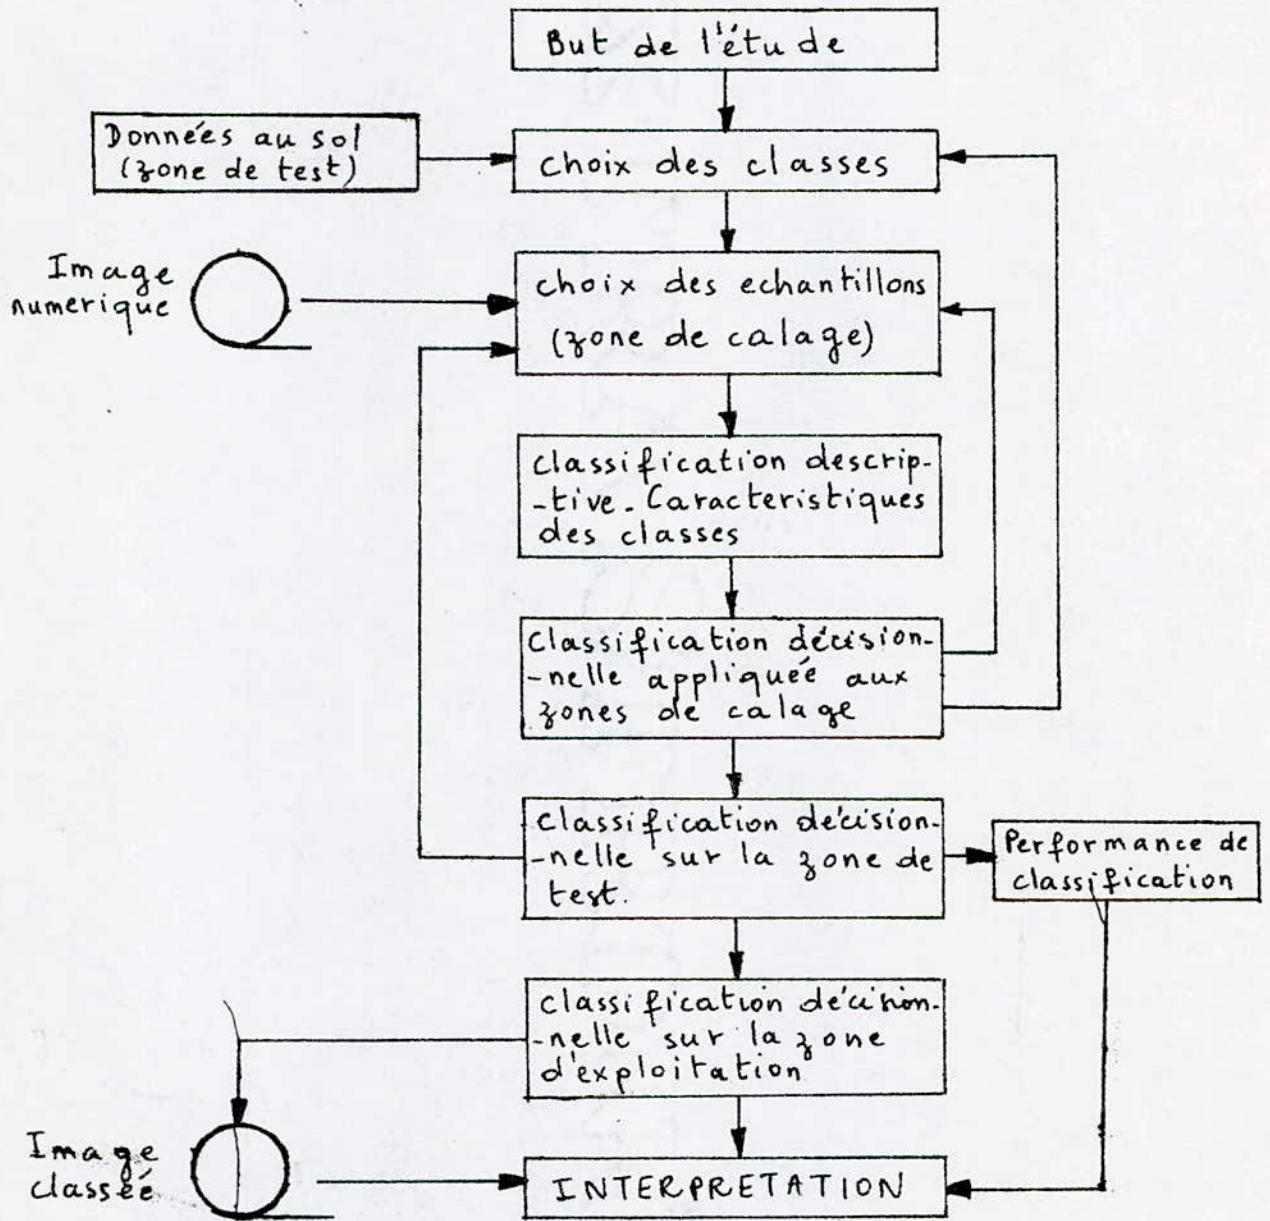 But de l'étude
Données au sol
(zone de test)
choix des classes
Image
numerique
choix des echantillons
(zone de calage)
classification descrip-
-tive. Caracteristiques
des classes
Classification décision-
-nelle appliquée aux
zones de calage
classification décision-
-nelle sur la zone de
test.
Performance de
classification
classification décision-
-nelle sur la zone
d'exploitation
Image
classée
INTERPRETATION